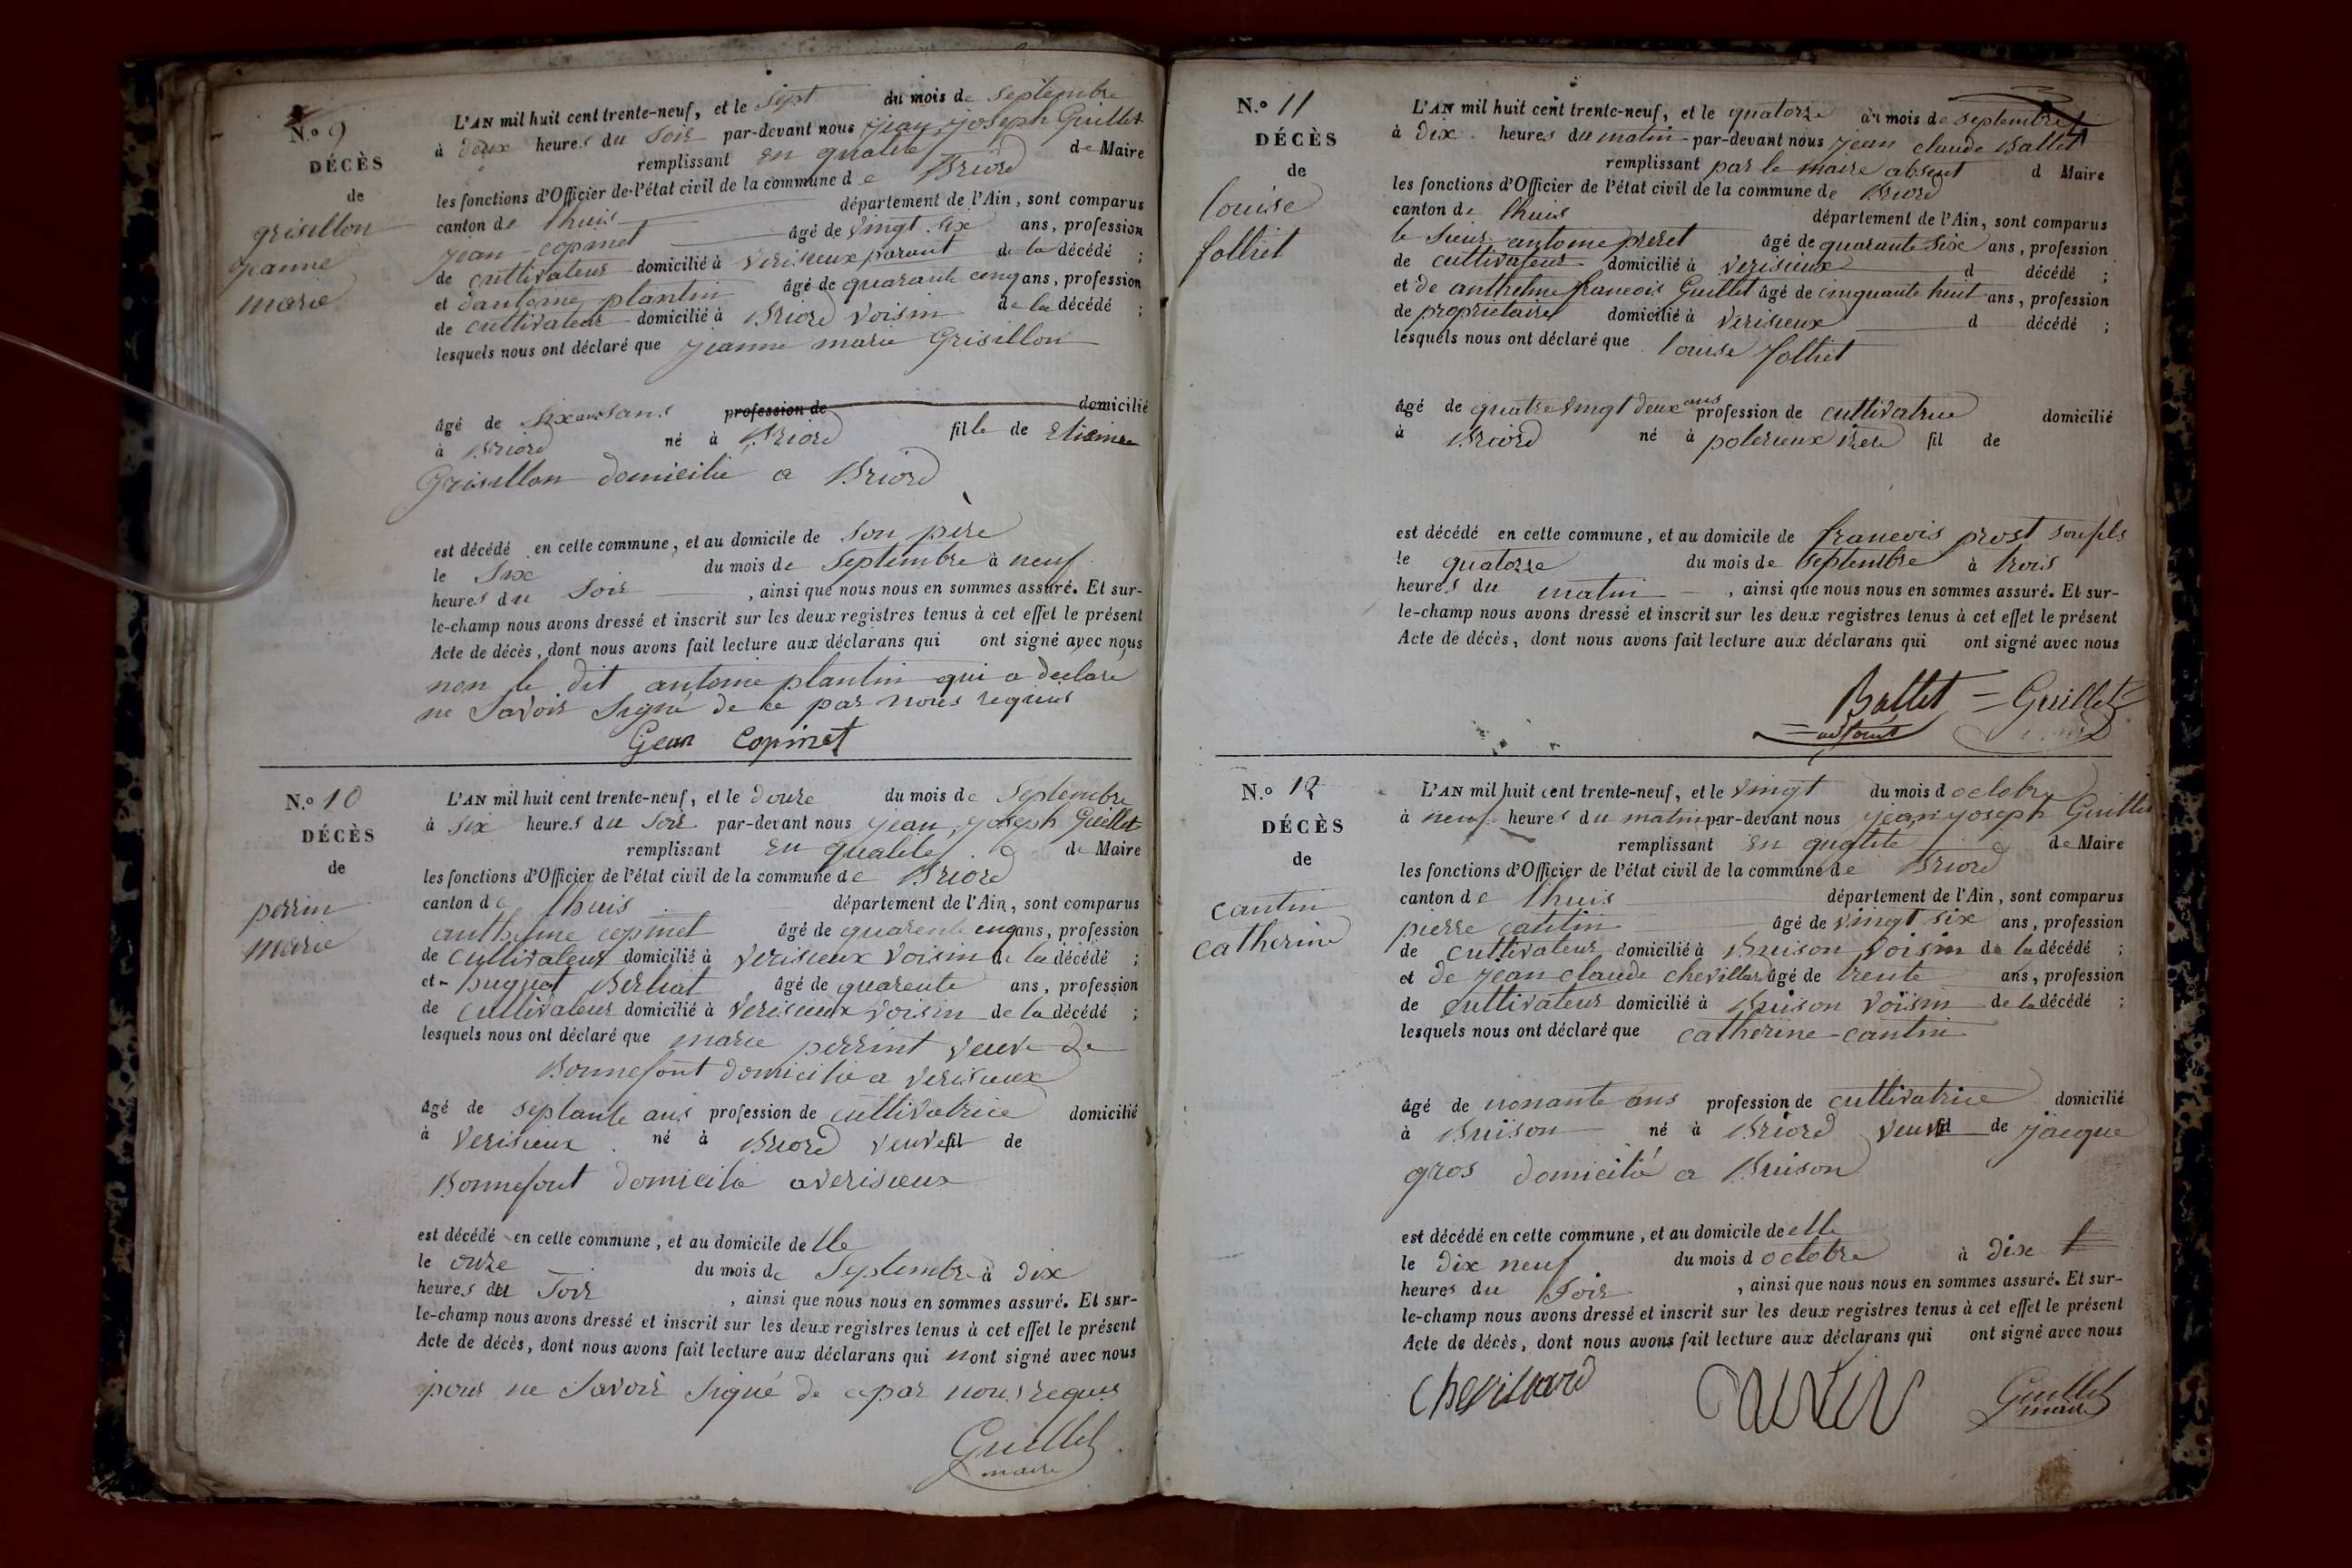 N.o 9
DÉCÈS
de
grisillon
jeanne
marie
L'AN mil huit cent trente-neuf, et le sept du mois de septembre
à deux heures du soir par-devant nous jean joseph Guillet
remplissant en qualité de Maire
les fonctions d'Officier de l'état civil de la commune de Briord
canton de lhuis département de l'Ain, sont comparus
jean copinet âgé de vingt six ans, profession
de cultivateur domicilié à verisieux parent de la décédé ;
et dantoine plantin âgé de quarante cinq ans, profession
de cultivateur domicilié à Briord voisin de la décédé ;
lesquels nous ont déclaré que jeanne marie Grisillon
âgé de six ans profession de domicilié
à Briord né à Briord fille de Etienne
Grisillon domicilié a Briord
est décédé en cette commune, et au domicile de son père
le six du mois de septembre à neuf
heures du soir , ainsi que nous nous en sommes assuré. Et sur-
le-champ nous avons dressé et inscrit sur les deux registres tenus à cet effet le présent
Acte de décès, dont nous avons fait lecture aux déclarans qui ont signé avec nous
non le dit antoine plantin qui a déclaré
ne savoir signé de ce par nous requis
Gean Copinet
N.o 10
DÉCÈS
de
perrin
marie
L'AN mil huit cent trente-neuf, et le douze du mois de Septembre
à six heures du soir par-devant nous jean joseph Guillet
remplissant en qualité de Maire
les fonctions d'Officier de l'état civil de la commune de Briord
canton de lhuis département de l'Ain, sont comparus
anthelme copinet âgé de quarente cinq ans, profession
de cultivateur domicilié à verisieux voisin de la décédé ;
et huguet Berliat âgé de quarente ans, profession
de cultivateur domicilié à verisieux voisin de la décédé ;
lesquels nous ont déclaré que marie perrint veuve de
Bonnefont domicilié a verisieux
âgé de septante ans profession de cultivatrice domicilié
à verisieux né à Briord veuve fil de
Bonnefont domicilié a verisieux
est décédé en cette commune, et au domicile delle
le onze du mois de Septembre à dix
heures du soir , ainsi que nous nous en sommes assuré. Et sur-
le-champ nous avons dressé et inscrit sur les deux registres tenus à cet effet le présent
Acte de décès, dont nous avons fait lecture aux déclarans qui nont signé avec nous
pour ne savoir signé de ce par nous requis
Guillet
maire
N.o 11
DÉCÈS
de
louise
folliet
L'AN mil huit cent trente-neuf, et le quatorze du mois de septembre
à dix heures du matin par-devant nous jean claude Ballet
remplissant par le maire absent d Maire
les fonctions d'Officier de l'état civil de la commune de Briord
canton de lhuis département de l'Ain, sont comparus
le sieur antoine preret âgé de quarante six ans, profession
de cultivateur domicilié à verisieux d décédé ;
et de anthelme francois Guillet âgé de cinquante huit ans, profession
de propriétaire domicilié à verisieux d décédé ;
lesquels nous ont déclaré que louise folliet
âgé de quatre vingt deux ans profession de cultivatrice domicilié
à Briord né à polerieux isere fil de
est décédé en cette commune, et au domicile de francois prost son fils
le quatorze du mois de septembre à trois
heures du matin , ainsi que nous nous en sommes assuré. Et sur-
le-champ nous avons dressé et inscrit sur les deux registres tenus à cet effet le présent
Acte de décès, dont nous avons fait lecture aux déclarans qui ont signé avec nous
Ballet = Guillet
adjoint
N.o 12
DÉCÈS
de
cantin
catherine
L'AN mil huit cent trente-neuf, et le vingt du mois d octobre
à neuf heures du matin par-devant nous jean joseph Guillet
remplissant en qualité de Maire
les fonctions d'Officier de l'état civil de la commune de Briord
canton de lhuis département de l'Ain, sont comparus
pierre cantin âgé de vingt six ans, profession
de cultivateur domicilié à Buison voisin de la décédé ;
et de jean claude chevillar âgé de trente ans, profession
de cultivateur domicilié à Buison voisin de la décédé ;
lesquels nous ont déclaré que catherine cantin
âgé de nonante ans profession de cultivatrice domicilié
à Buison né à Briord veuve de jacque
gros domicilié a Buison
est décédé en cette commune, et au domicile de elle
le dix neuf du mois d octobre à dix
heures du soir , ainsi que nous nous en sommes assuré. Et sur-
le-champ nous avons dressé et inscrit sur les deux registres tenus à cet effet le présent
Acte de décès, dont nous avons fait lecture aux déclarans qui ont signé avec nous
Chevillard Guillet
maire